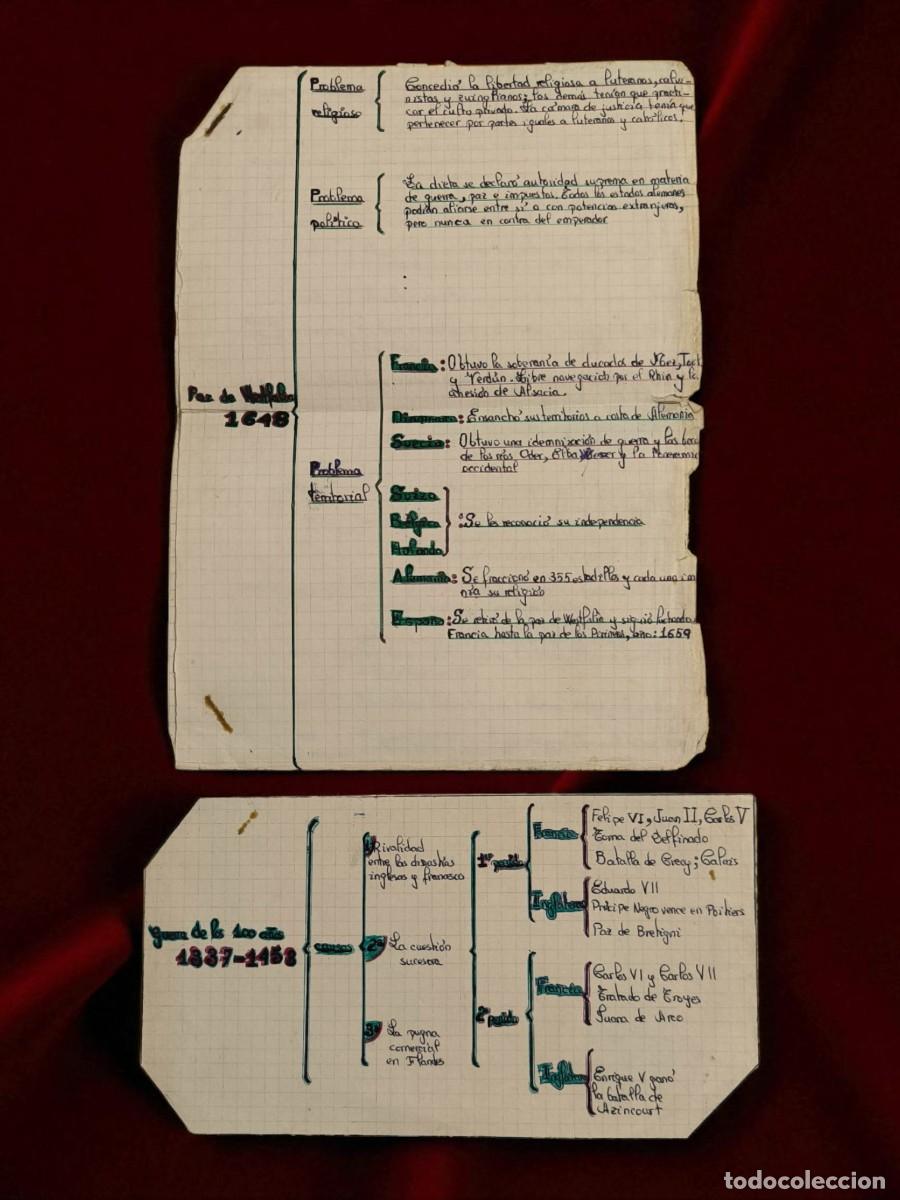 Problema
religioso
Concedió la libertad religiosa a luteranos, calvi-
nistas y zuinglianos; los demás tenían que practi-
car el culto privado. La cámara de justicia tenía que
pertenecer por partes iguales a luteranos y católicos.
Problema
político
La dieta se declaró autoridad suprema en materia
de guerra, paz e impuestos. Todos los estados alemanes
podían aliarse entre sí o con potencias extranjeras,
pero nunca en contra del emperador
Paz de Westfalia
1648
Problema
territorial
Francia: Obtuvo la soberanía de ducados de Metz, Toul
y Verdún. Libre navegación por el Rhin y la
adhesión de Alsacia.
Dinamarca: Ensanchó sus territorios a costa de Alemania
Suecia: Obtuvo una idemnización de guerra y las boca
de los ríos, Oder, Elba y la Pomerania
occidental
Suiza
Bélgica
Holanda
: Se les reconoció su independencia
Alemania: Se fraccionó en 355 estadillos y cada uno
nía su religión
España: Se retiró de la paz de Westfalia y siguió luchando
Francia hasta la paz de los Pirineos, año: 1659
Guerra de los 100 años
1337-1453
causas
1ª Rivalidad
entre las dinastías
inglesas y francesa
2ª La cuestión
sucesora
3ª La pugna
comercial
en Flandes
1er periodo
Francia
Felipe VI, Juan II, Carlos V
Toma del Delfinado
Batalla de Crecy; Calais
Inglaterra
Eduardo VII
Príncipe Negro vence en Poitiers
Paz de Bretigni
2º periodo
Francia
Carlos VI y Carlos VII
Tratado de Troyes
Juana de Arco
Inglaterra
Enrique V ganó
la batalla de
Azincourt
todocoleccion